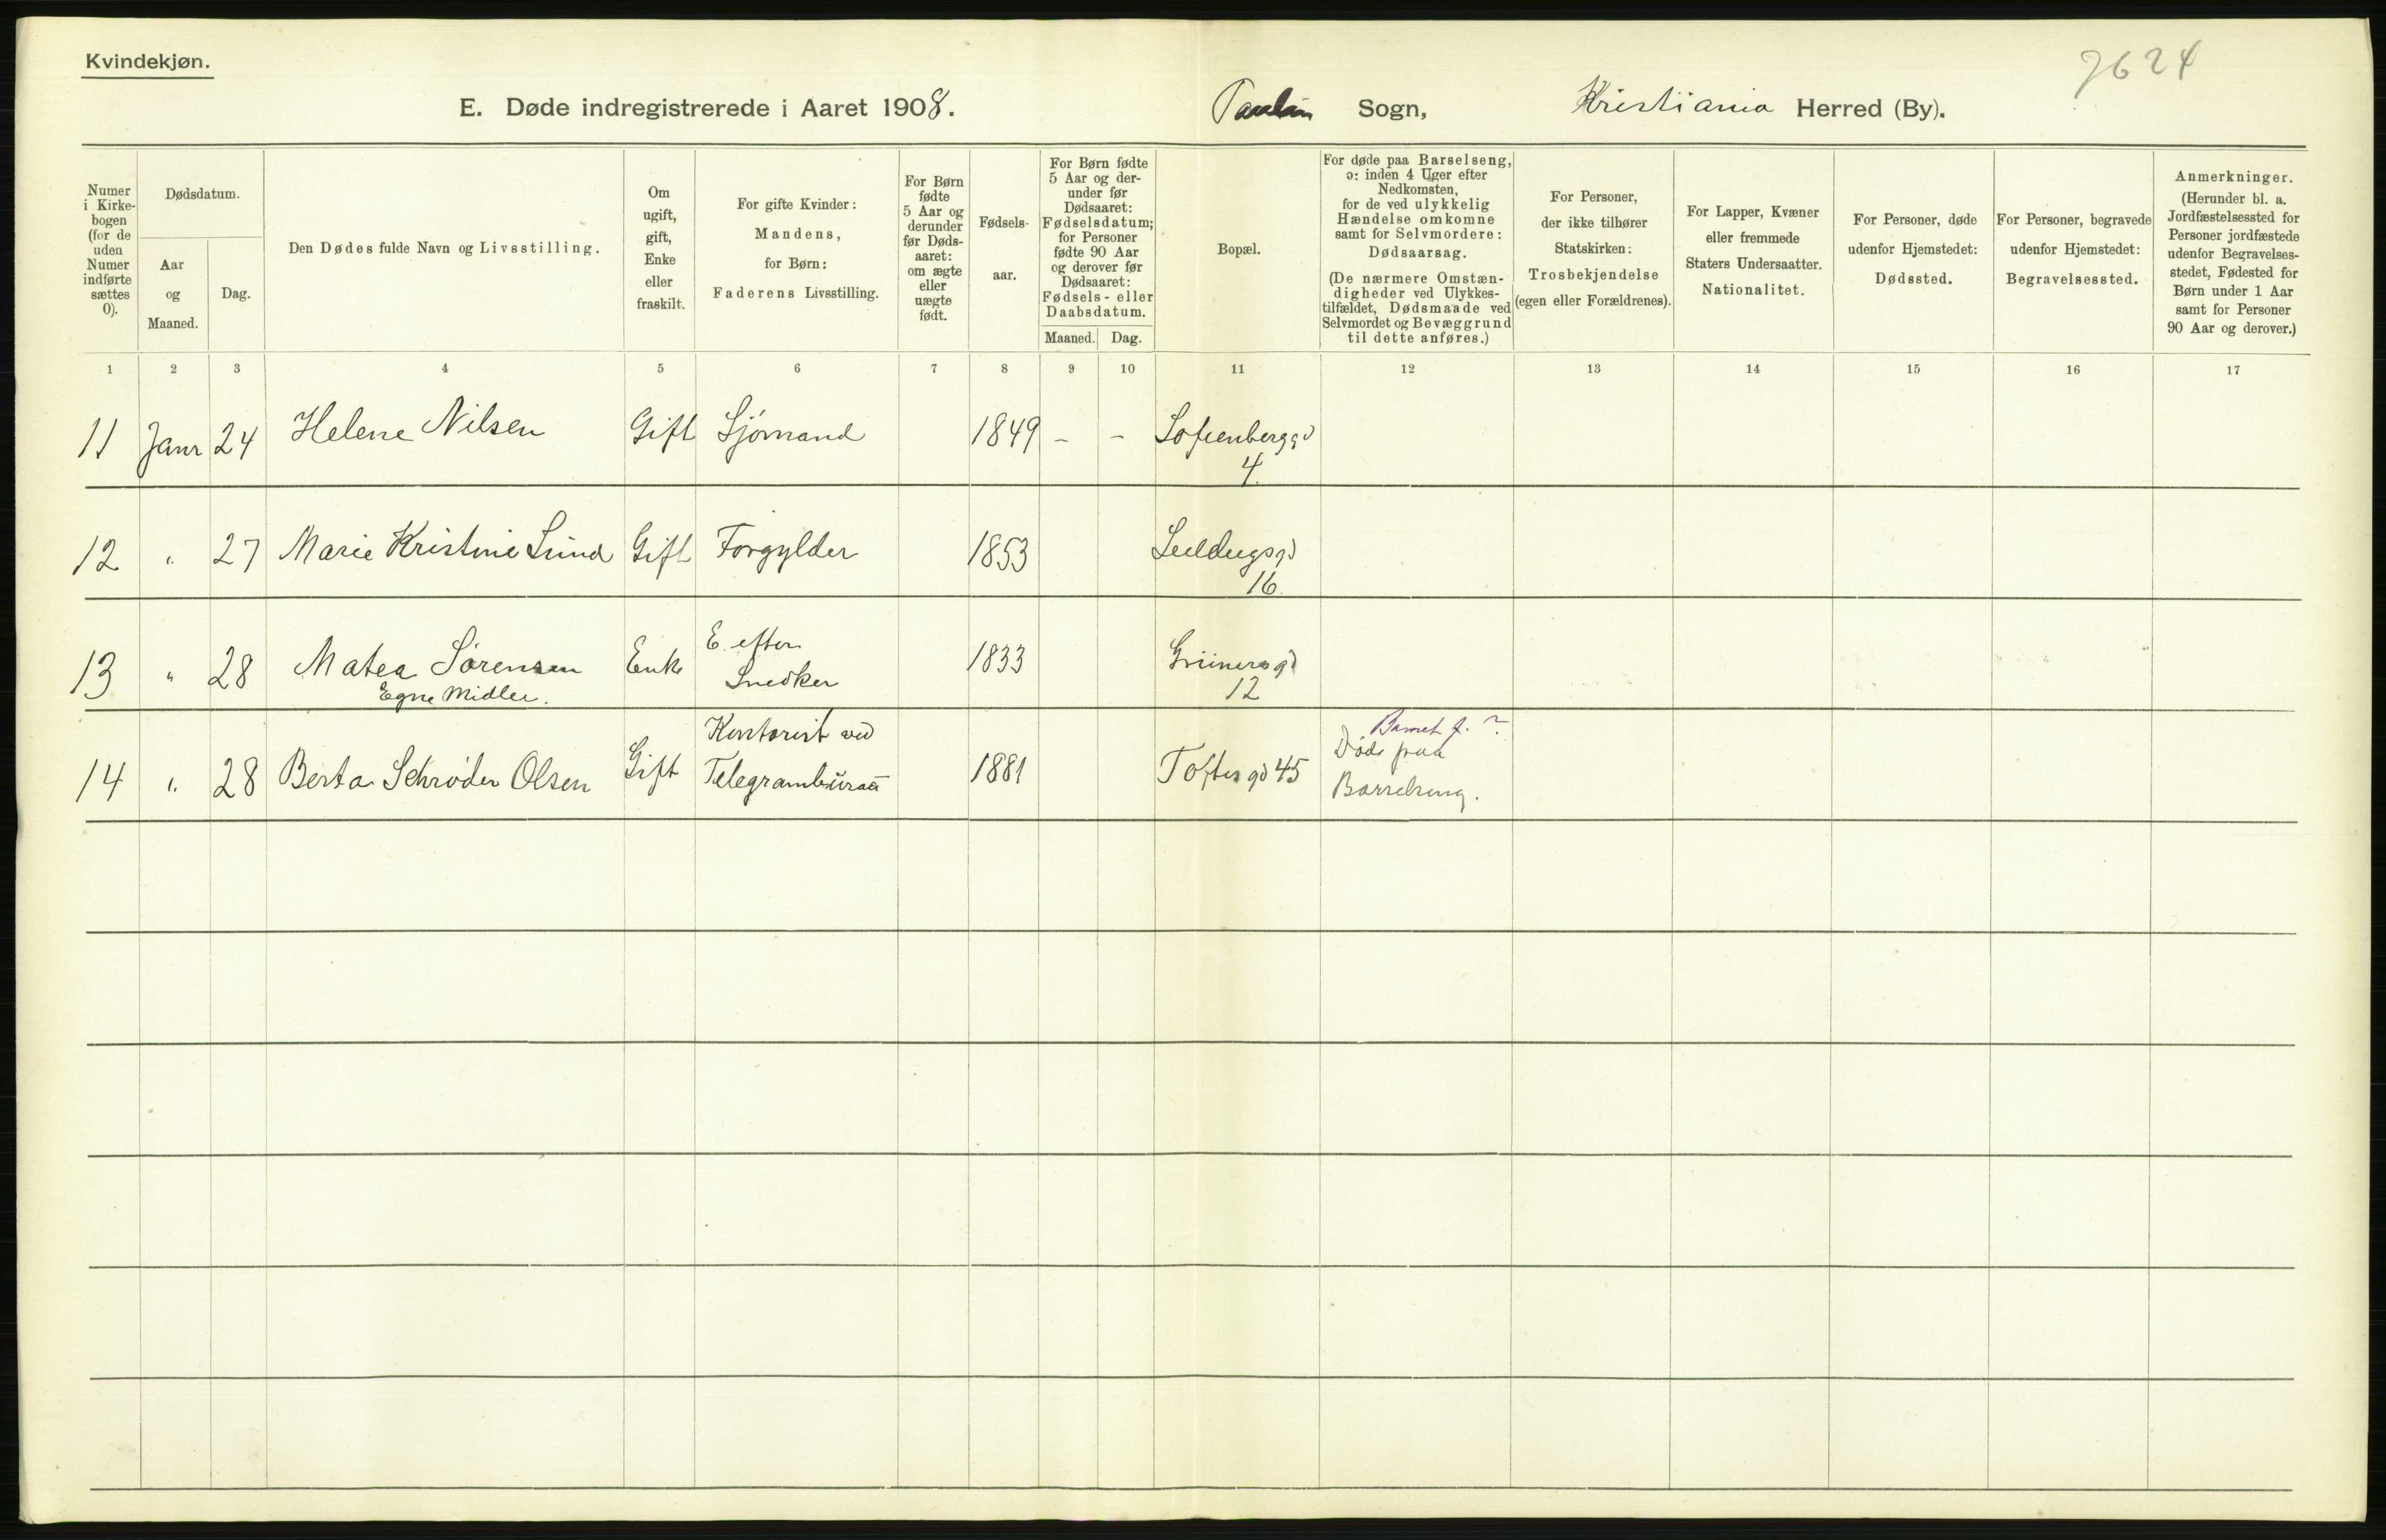 Kvindekjøn.
7624
E. Døde indregistrerede i Aaret 1908. Paulus Sogn, Kristiania Herred (By).
Numer i Kirke-bogen (for de uden Numer indførte sættes 0).
Dødsdatum.
Aar og Maaned.
Dag.
Den Dødes fulde Navn og Livsstilling.
Om ugift, gift, Enke eller fraskilt.
For gifte Kvinder: Mandens, for Børn: Faderens Livsstilling.
For Børn fødte 5 Aar og derunder før Døds-aaret: om ægte eller uægte født.
Fødsels-aar.
For Børn fødte 5 Aar og der-under før Dødsaaret: Fødselsdatum; for Personer fødte 90 Aar og derover før Dødsaaret: Fødsels- eller Daabsdatum.
Maaned. Dag.
Bopæl.
For døde paa Barselseng, ɔ: inden 4 Uger efter Nedkomsten, for de ved ulykkelig Hændelse omkomne samt for Selvmordere: Dødsaarsag. (De nærmere Omstæn-digheder ved Ulykkes-tilfældet, Dødsmaade ved Selvmordet og Bevæggrund til dette anføres.)
For Personer, der ikke tilhører Statskirken: Trosbekjendelse (egen eller Forældrenes).
For Lapper, Kvæner eller fremmede Staters Undersaatter. Nationalitet.
For Personer, døde udenfor Hjemstedet: Dødssted.
For Personer, begravede udenfor Hjemstedet: Begravelsessted.
Anmerkninger. (Herunder bl. a. Jordfæstelsessted for Personer jordfæstede udenfor Begravelses-stedet, Fødested for Børn under 1 Aar samt for Personer 90 Aar og derover.)
1 2 3 4 5 6 7 8 9 10 11 12 13 14 15 16 17
11 Janr 24 Helene Nilsen Gift Sjømand 1849 - - Sofienberggd
4.
12 " 27 Marie Kristine Lund Gift Forgylder 1853
16.
13 " 28 Matea Sørensen Enke E. efter Snedker 1833 Grünersgd
Egne Midler. 12
14 " 28 Berta Schrøder Olsen Gift Kontorist ved Telegrambüraü 1881 Toftesgd 45 Barnet f. ?
Døde paa
Barselseng.